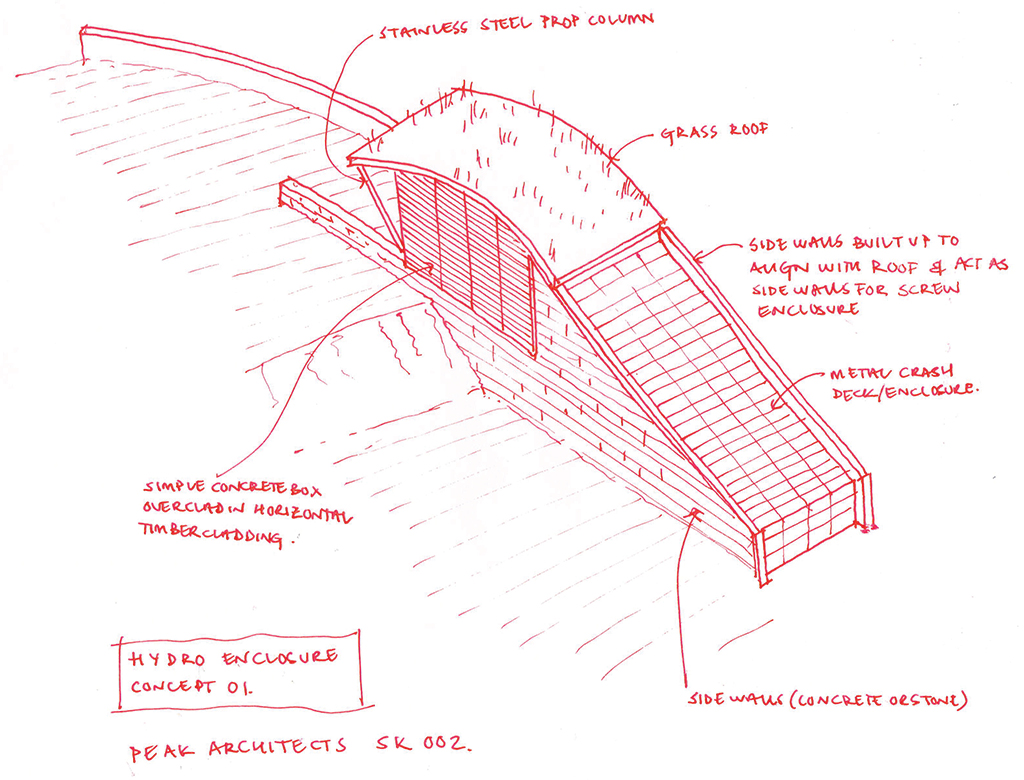 STAINLESS STEEL PROP COLUMN
GRASS ROOF
SIDE WALLS BUILT UP TO
ALIGN WITH ROOF & ACT AS
SIDE WALLS FOR SCREW
ENCLOSURE
METAL CRASH
DECK/ENCLOSURE.
SIMPLE CONCRETE BOX
OVERCLAD IN HORIZONTAL
TIMBER CLADDING.
SIDE WALLS (CONCRETE OR STONE)
HYDRO ENCLOSURE
CONCEPT 01.
PEAK ARCHITECTS SK 002.